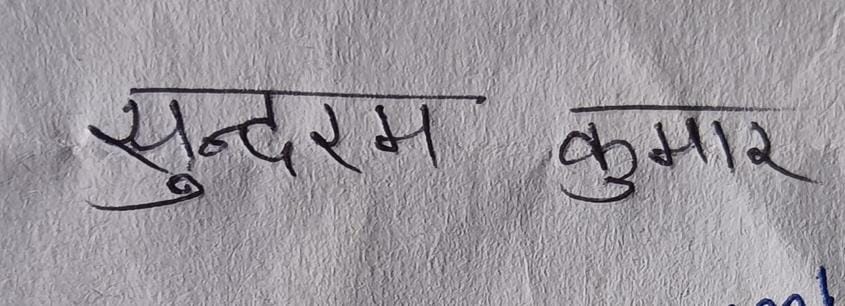 सुन्दरम कुमार